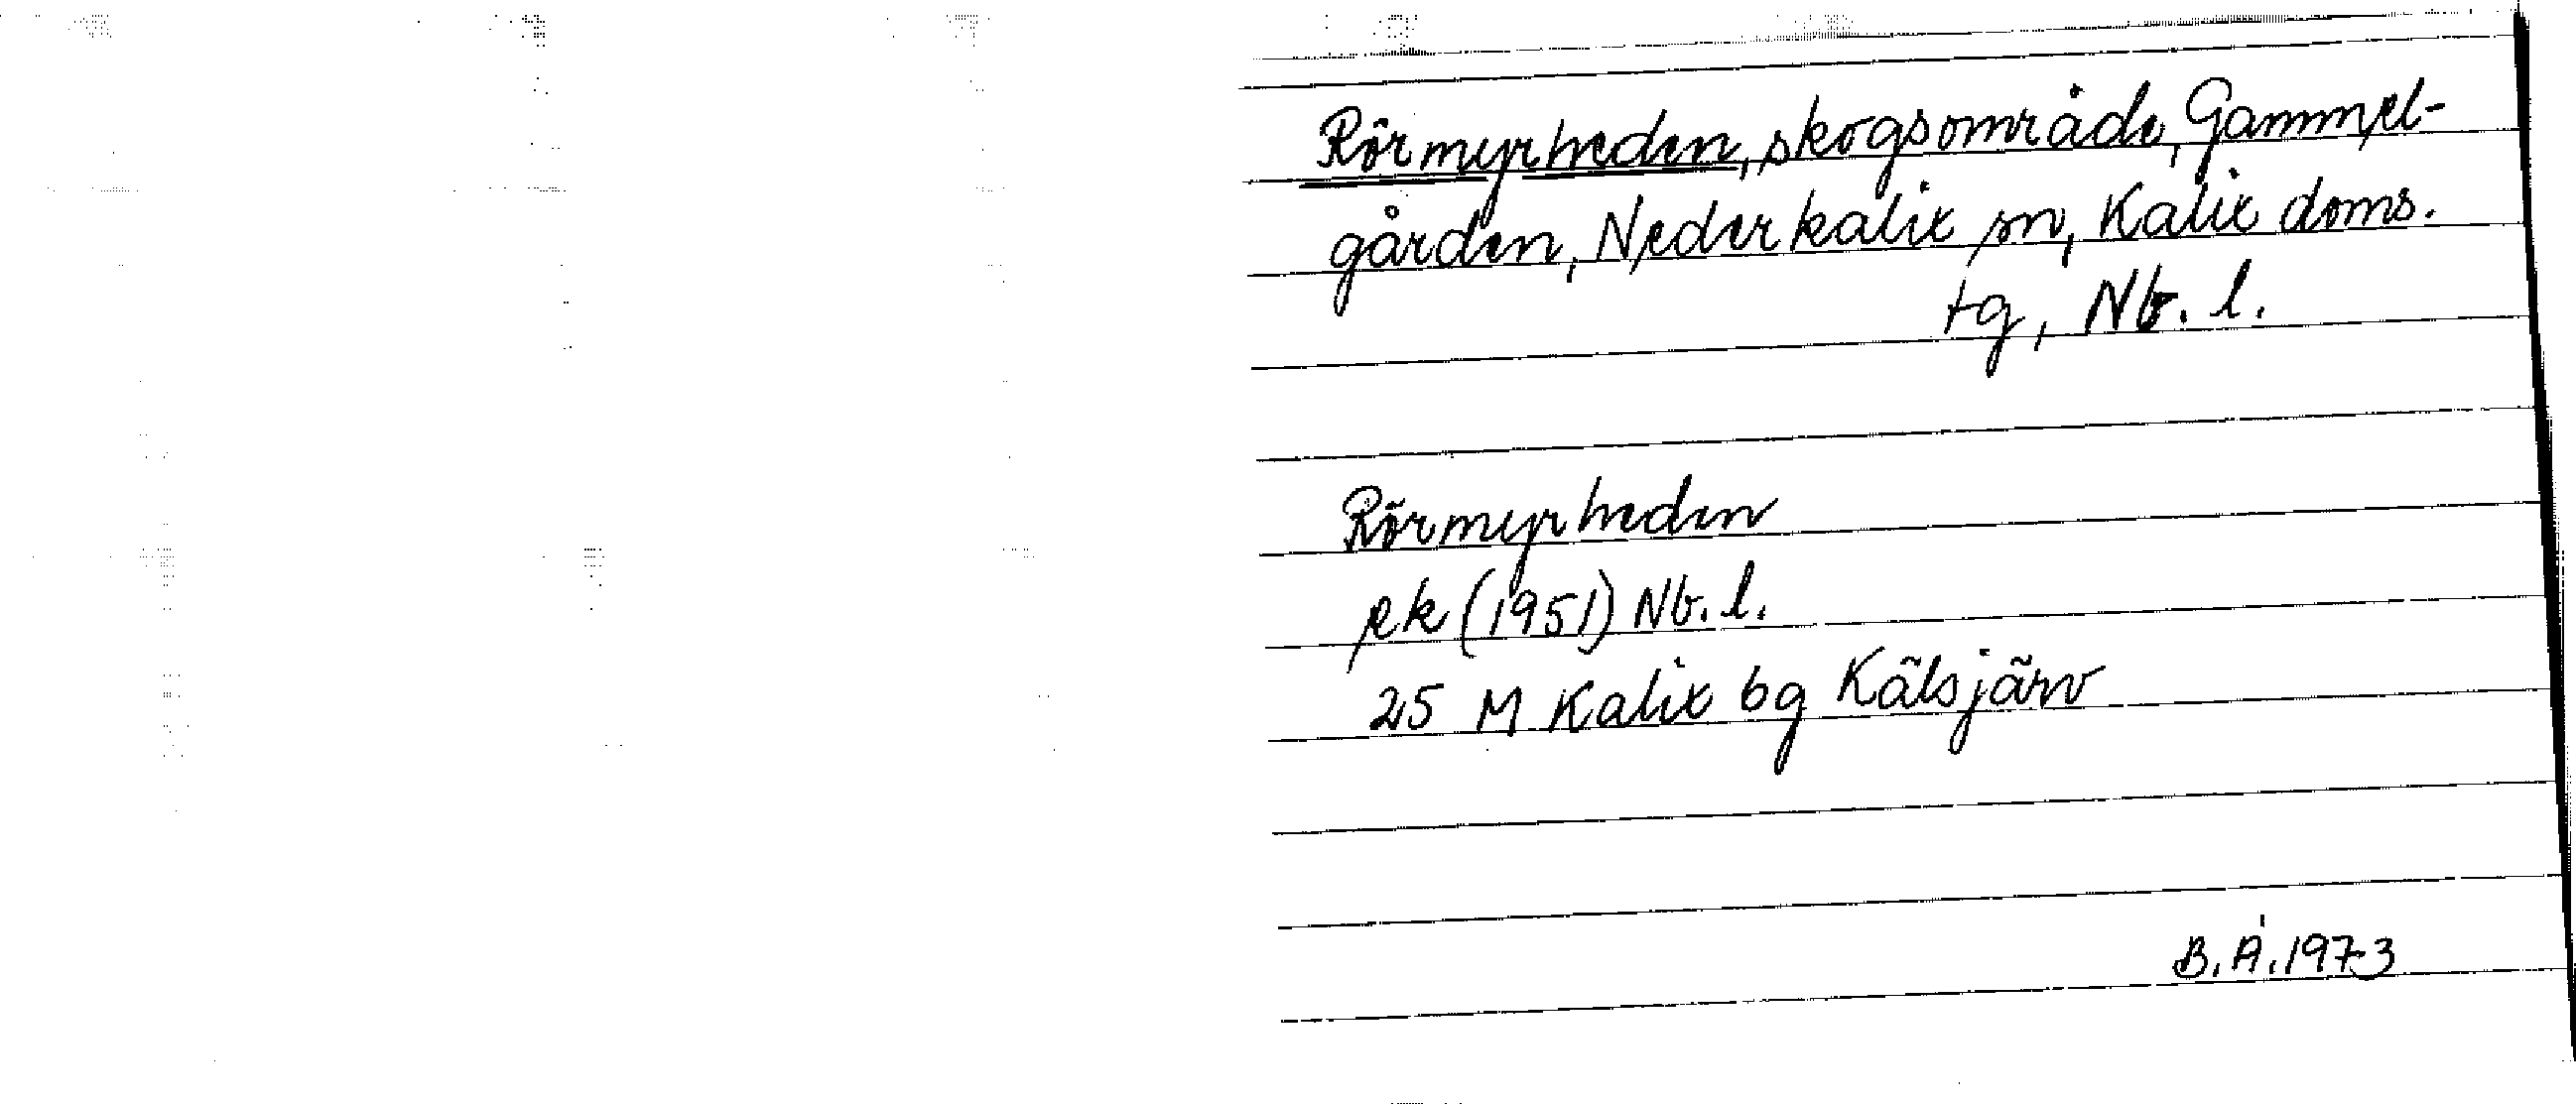 Rörmyrheden, skogsområde, Gammel-
gården, Nederkalix sn, Kalix doms.
tg, Nb. l.
Rörmyrheden
ek (1951) Nb. l.
25 M Kalix bg Kälsjärv
B. Å. 1973